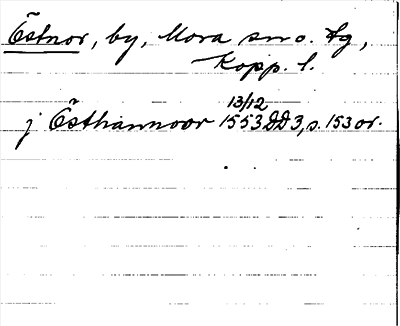 Östnor, by, Mora sn o. tg,
Kopp. l.
j Östhannoor 13/12 1553 DD3, s. 153 or.